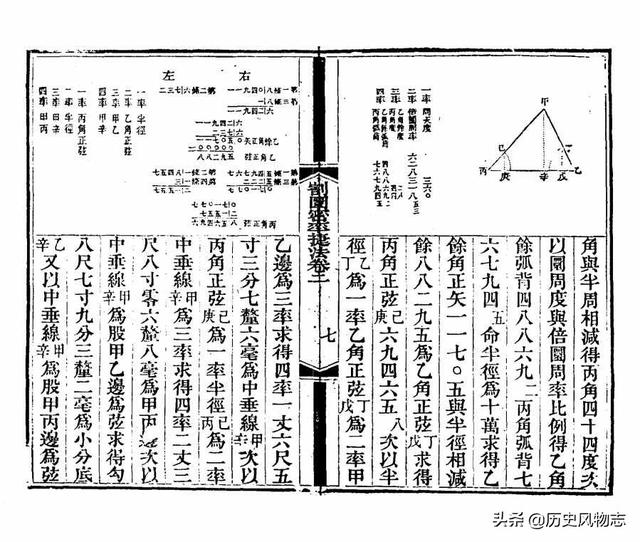 甲
丙
乙
三六〇
二率倍圜周率 六二八三一八五三
角與半周相減得丙角四十四度次
以圜周度與倍圜周率比例得乙角
餘弧背四八八六九二丙角弧背七
六七九四五命半徑爲十萬求得乙
餘角正矢一一七〇五與半徑相減
餘八八二九五爲乙角正弦丁戊求得
丙角正弦己庚六九四六五八次以半
徑乙丁爲一率乙角正弦丁戊爲二率甲
割圜密率捷法卷三
七
右
左
一率半徑
二率乙角正弦
三率甲乙
一率丙角正弦
二率半徑
四率甲丙
乙邊爲三率求得四率一丈六尺五
寸三分七釐六毫爲中垂線甲辛次以
丙角正弦己庚爲一率半徑己丙爲二率
中垂線甲辛爲三率求得四率二丈三
尺八寸零六釐八毫爲甲丙邊次以
中垂線甲辛爲股甲乙邊爲弦求得勾
八尺七寸九分三釐二毫爲小分底
乙辛又以中垂線甲辛爲股甲丙邊爲弦
头条 @历史风物志